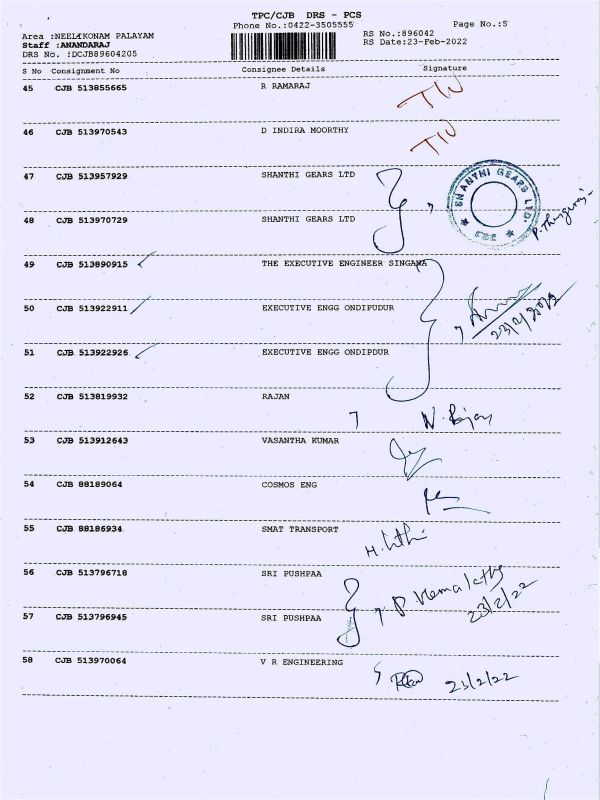 TPC/CJB DRS - PCS
Phone No.:0422-3505555
Page No.:5
Area :NEELIKONAM PALAYAM
RS No.:896042
Staff :ANANDARAJ
RS Date:23-Feb-2022
DRS No. :DCJB89604205
S No Consignment No Consignee Details Signature
45 CJB 513855665 R RAMARAJ
46 CJB 513970543 D INDIRA MOORTHY
47 CJB 513957929 SHANTHI GEARS LTD
SHANTHI GEARS LTD.
CBE
48 CJB 513970729 SHANTHI GEARS LTD
49 CJB 513890915 THE EXECUTIVE ENGINEER SINGANA
50 CJB 513922911 EXECUTIVE ENGG ONDIPUDUR
23/2/2022
51 CJB 513922926 EXECUTIVE ENGG ONDIPDUR
52 CJB 513819932 RAJAN
N. Rajan
53 CJB 513912643 VASANTHA KUMAR
54 CJB 88189064 COSMOS ENG
55 CJB 88186934 SMAT TRANSPORT
56 CJB 513796718 SRI PUSHPAA
P Hemalatha
23/2/22
57 CJB 513796945 SRI PUSHPAA
58 CJB 513970064 V R ENGINEERING
23/2/22